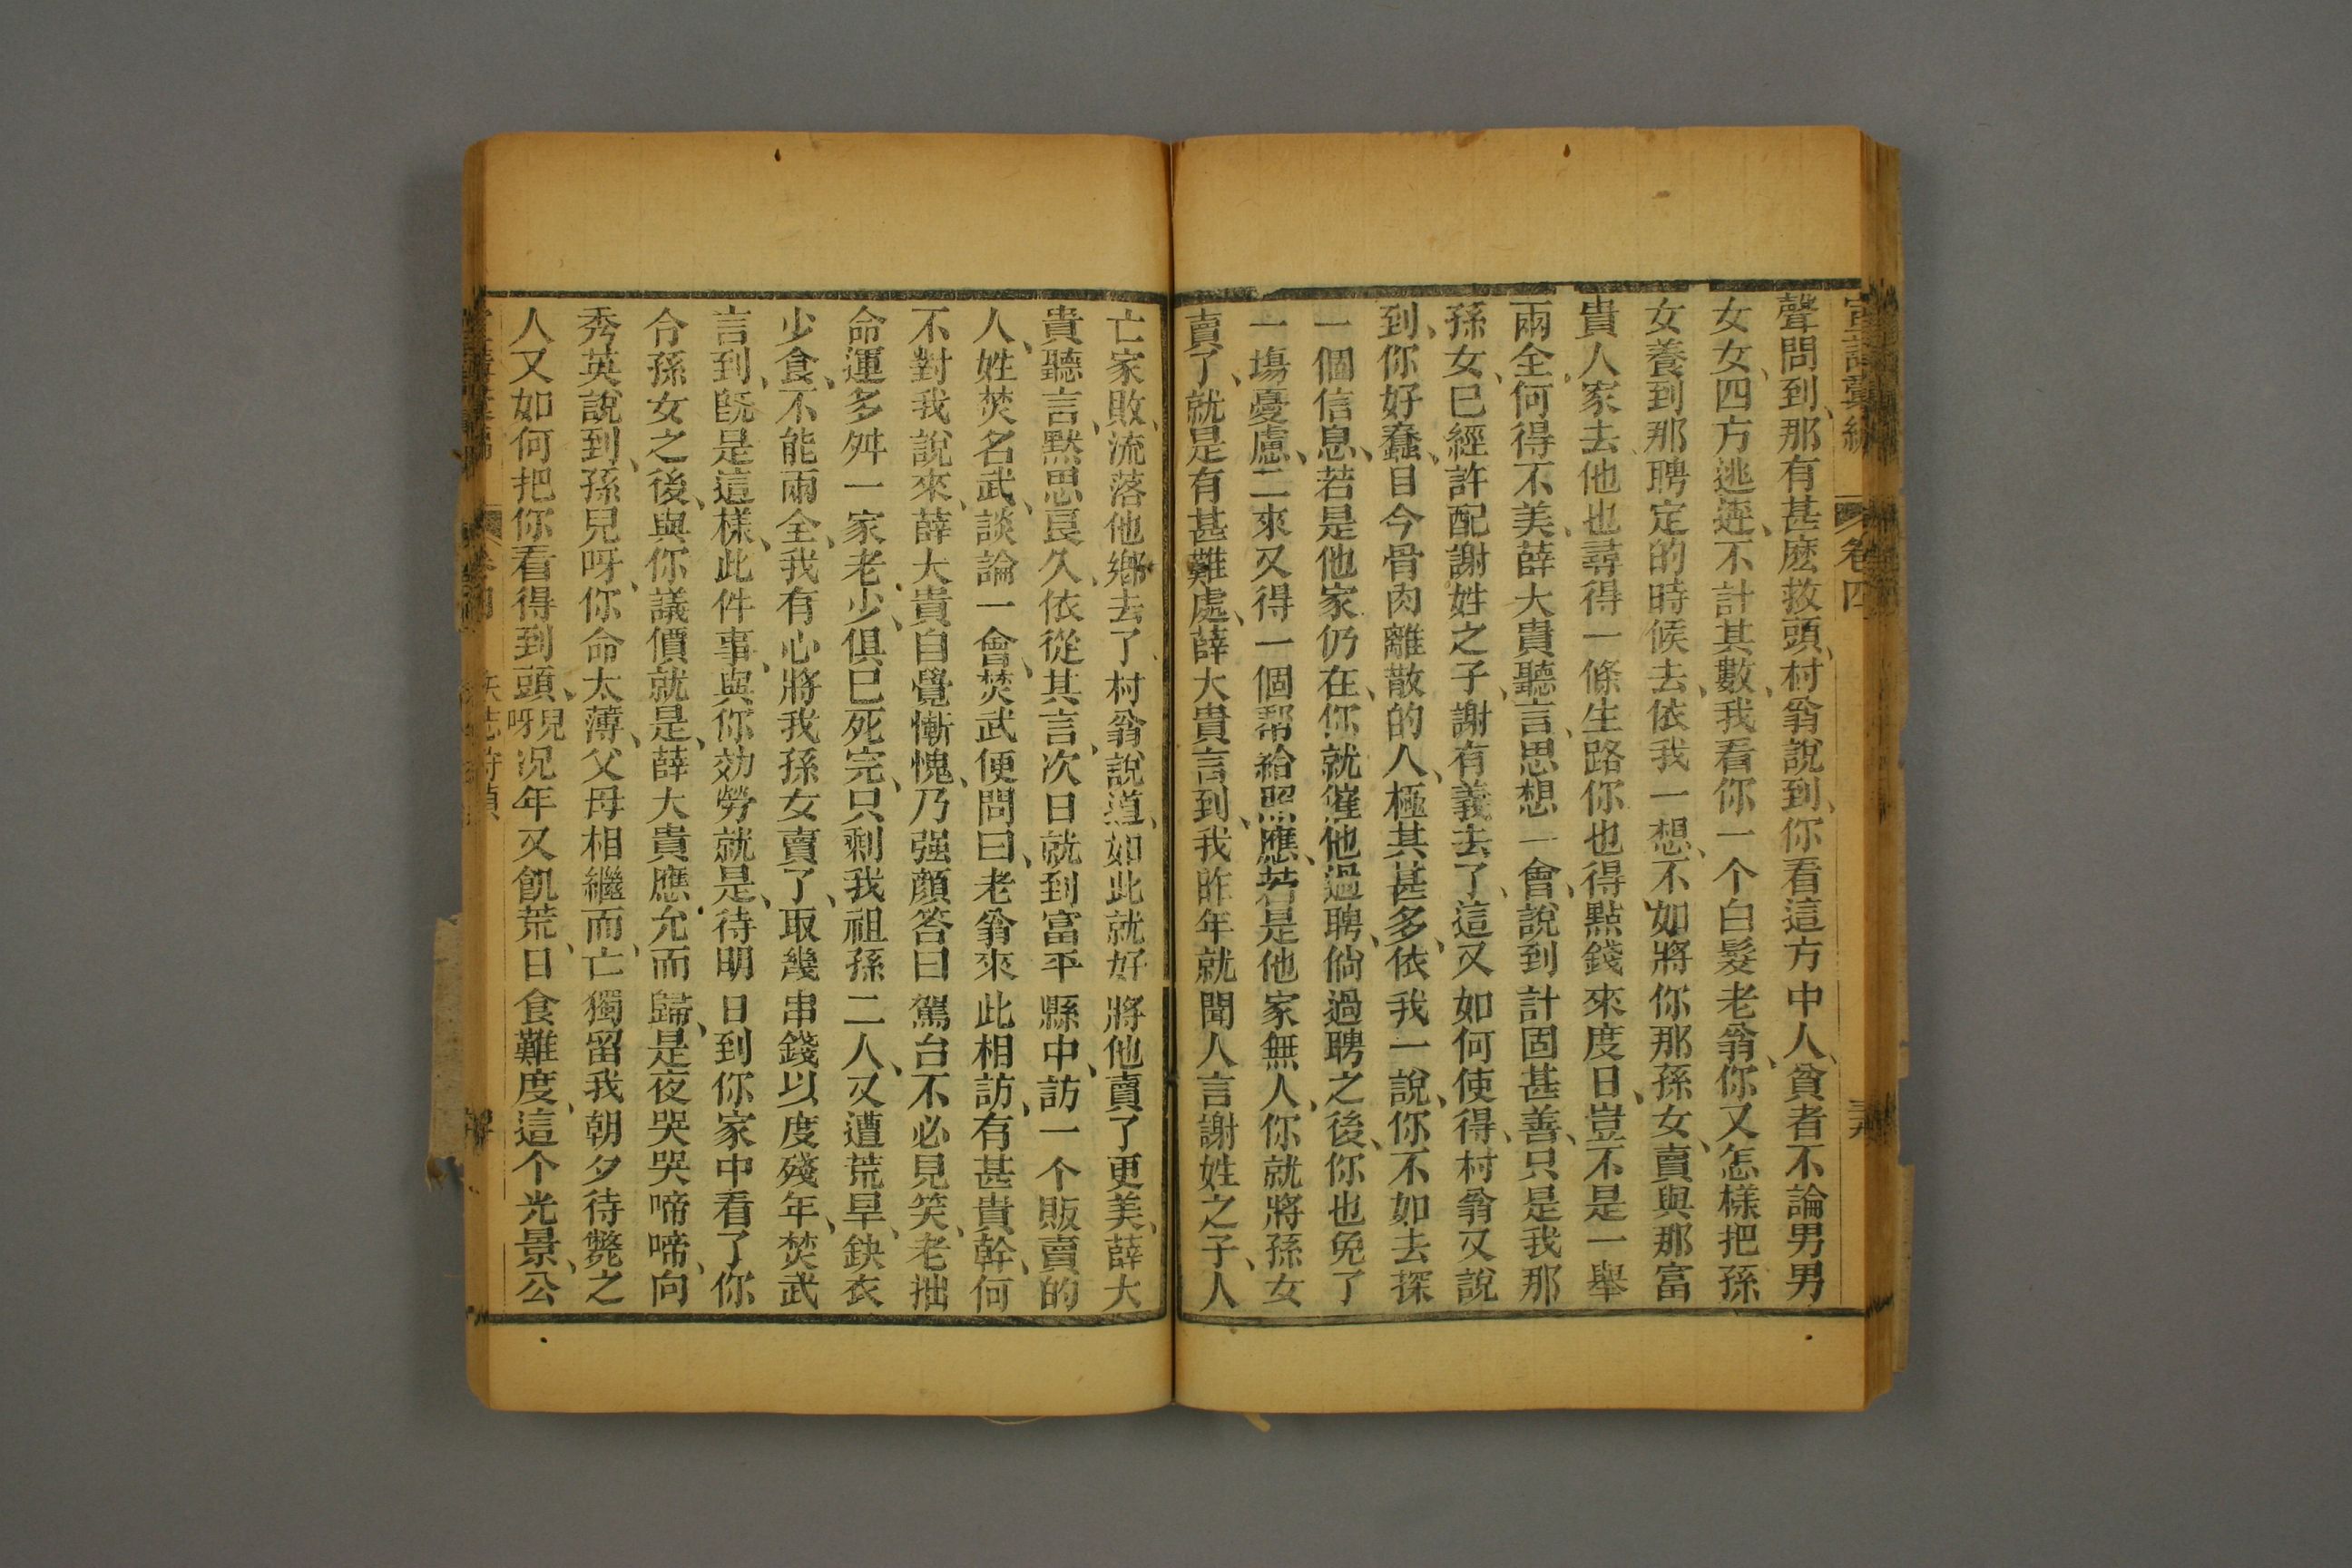 宣講彙編 卷四
聲問到、那有甚麽救頭、村翁說到、你看這方中人、貧者不論男男
女女、四方逃遊、不計其數、我看你一个白髮老翁、你又怎樣把孫
女養到那聘定的時候去、依我一想、不如將你那孫女、賣與那富
貴人家去、他也尋得一條生路、你也得點錢來度日、豈不是一舉
兩全、何得不美、薛大貴聽言、思想一會、說到計固甚善、只是我那
孫女、已經許配謝姓之子、謝有義去了、這又如何使得、村翁又說
到、你好蠢、目今骨肉離散的人、極其甚多、依我一說、你不如去探
一個信息、若是他家仍在、你就催他過聘、倘過聘之後、你也免了
一塲憂慮、二來又得一個帮給照應、若是他家無人、你就將孫女
賣了、就是有甚難處、薛大貴言到、我昨年就聞人言謝姓之子、人
亡家敗、流落他鄉去了、村翁說道、如此就好、將他賣了更美、薛大
貴聽言、默思良久、依從其言、次日就到富平縣中、訪一个販賣的
人、姓焚名武、談論一會、焚武便問曰、老翁來此相訪、有甚貴幹、何
不對我說來、薛大貴自覺慚愧、乃强顔答曰駕台不必見笑、老拙
命運多舛一家老少、俱已死完、只剩我祖孫二人、又遭荒旱、缺衣
少食、不能兩全、我有心將我孫女賣了、取幾串錢以度殘年、焚武
言到、旣是這樣、此件事、與你効勞就是、待明日到你家中看了你
令孫女之後、與你議價就是、薛大貴應允而歸、是夜哭哭啼啼、向
秀英說到、孫兒呀、你命太薄、父母相繼而亡、獨留我朝夕待斃之
人又如何把你看得到頭、兒呀況年又飢荒、日食難度、這个光景、公